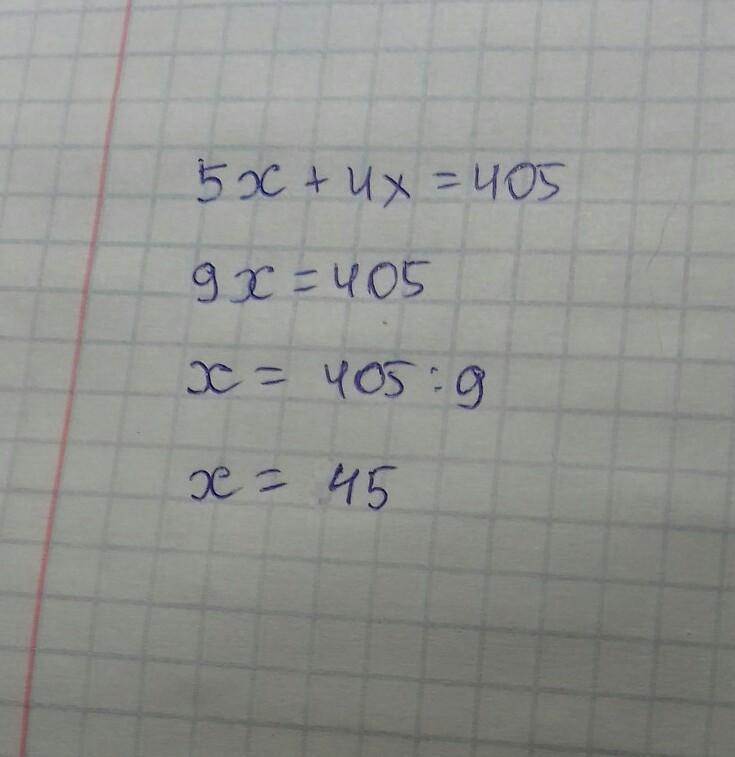 5x + 4x = 405
9x = 405
x = 405 : 9
x = 45